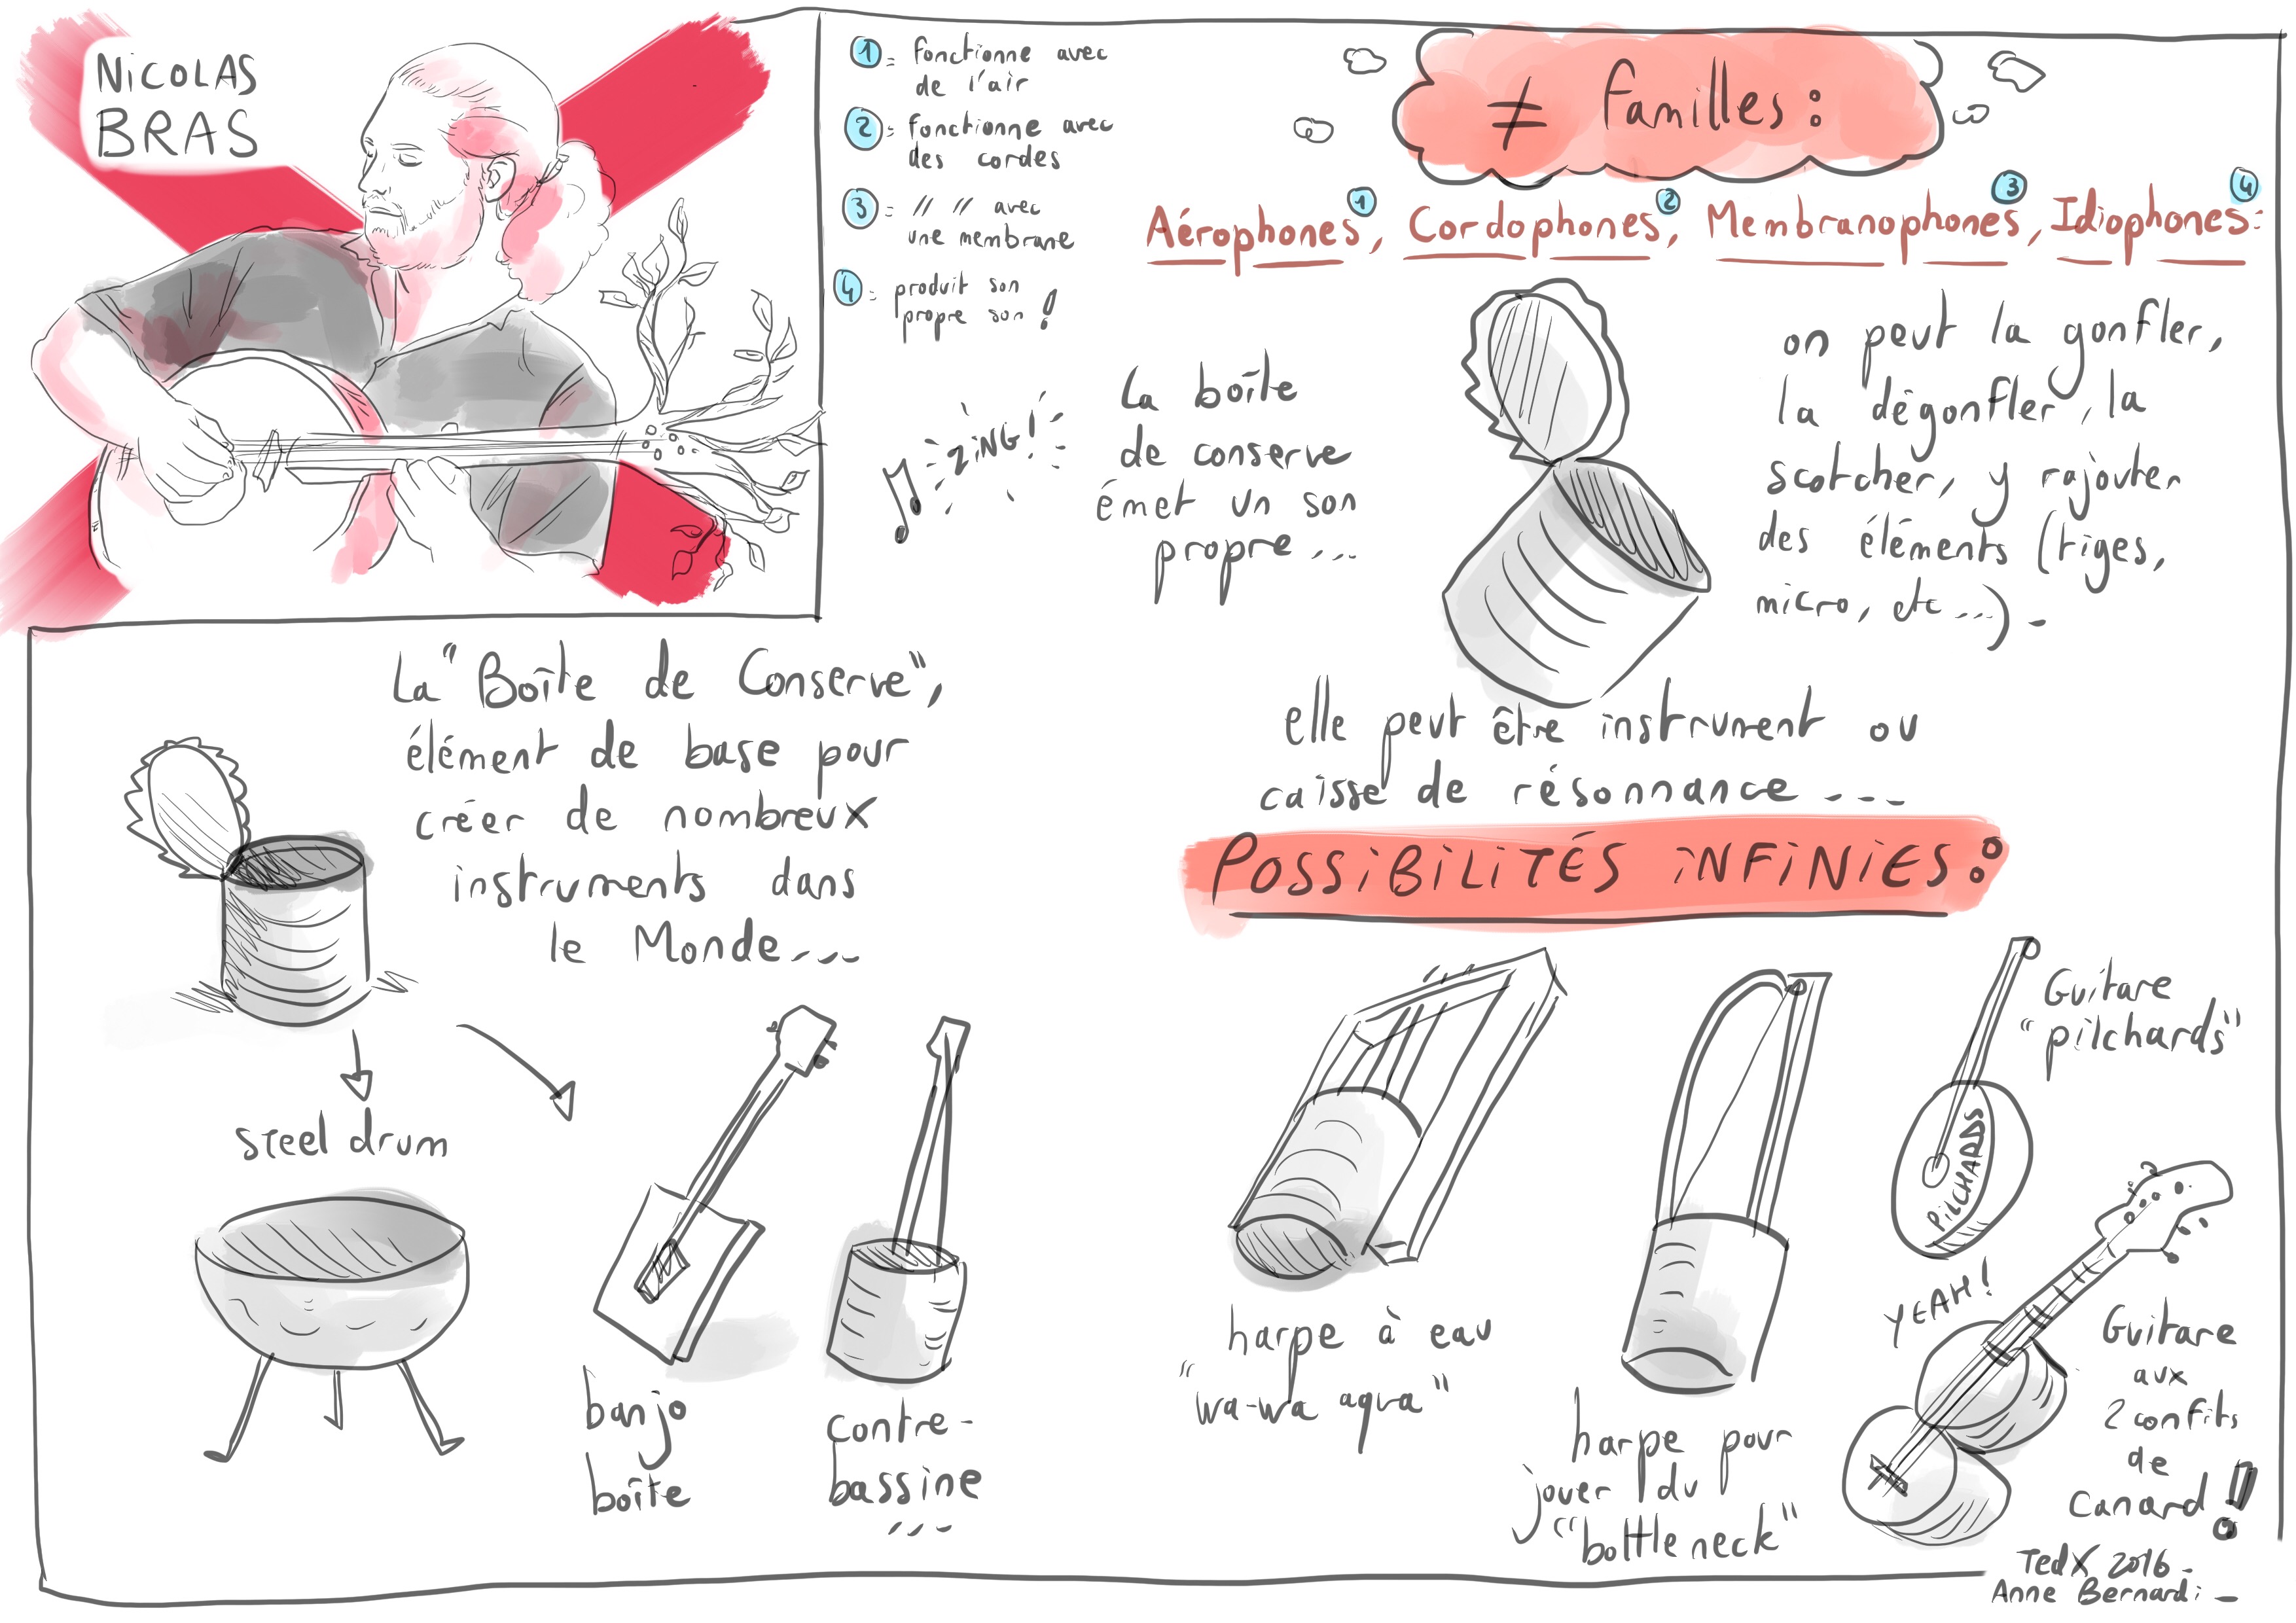 NiCOLAS
BRAS
1 = fonctionne avec
de l'air
2 = fonctionne avec
des cordes
3 = // // avec
une membrane
4 = produit son
propre son !
≠ familles :
Aérophones 1, Cordophones 2, Membranophones 3, Idiophones 4 :
ZiNG!
La boîte
de conserve
émet un son
propre...
on peut la gonfler,
la dégonfler, la
scotcher, y rajouter
des éléments (tiges,
micro, etc...) -
elle peut être instrument ou
caisse de résonnance ...
POSSiBiLiTÉS iNFiNiES :
La "Boîte de Conserve",
élément de base pour
créer de nombreux
instruments dans
le Monde...
steel drum
banjo
boîte
contre-
bassine
...
harpe à eau
"wa-wa aqua"
harpe pour
jouer du
"bottle neck"
Guitare
"pilchards"
PiLCHARDS
YEAH!
Guitare
aux
2 confits
de
Canard !!
TedX 2016 -
Anne Bernardi -